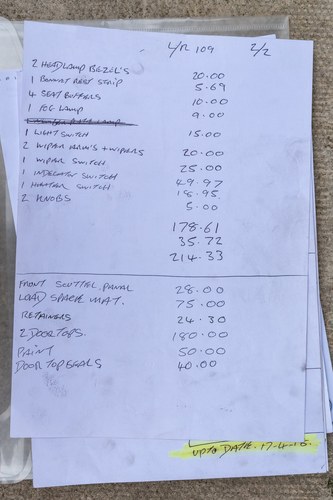 L/R 109 2/2
2 HEADLAMP BEZEL'S 20.00
1 BONNAT REST STRIP 5.69
4 SEAT BUFFERS 10.00
1 FOG LAMP 9.00
1 LIGHT SWITCH 15.00
2 WIPAR ARM'S + WIPERS 20.00
1 WIPAR SWITCH 25.00
1 INDECATOR SWITCH 49.97
1 HEATER SWITCH 18.95
2 KNOBS 5.00
178.61
35.72
214.33
FRONT SCUTTEL PANAL 28.00
LOAD SPACE MAT. 75.00
RETAINERS 24.30
2 DOOR TOPS. 180.00
PAINT 50.00
DOOR TOP SEALS 40.00
UPTO DATE. 17-4-15.